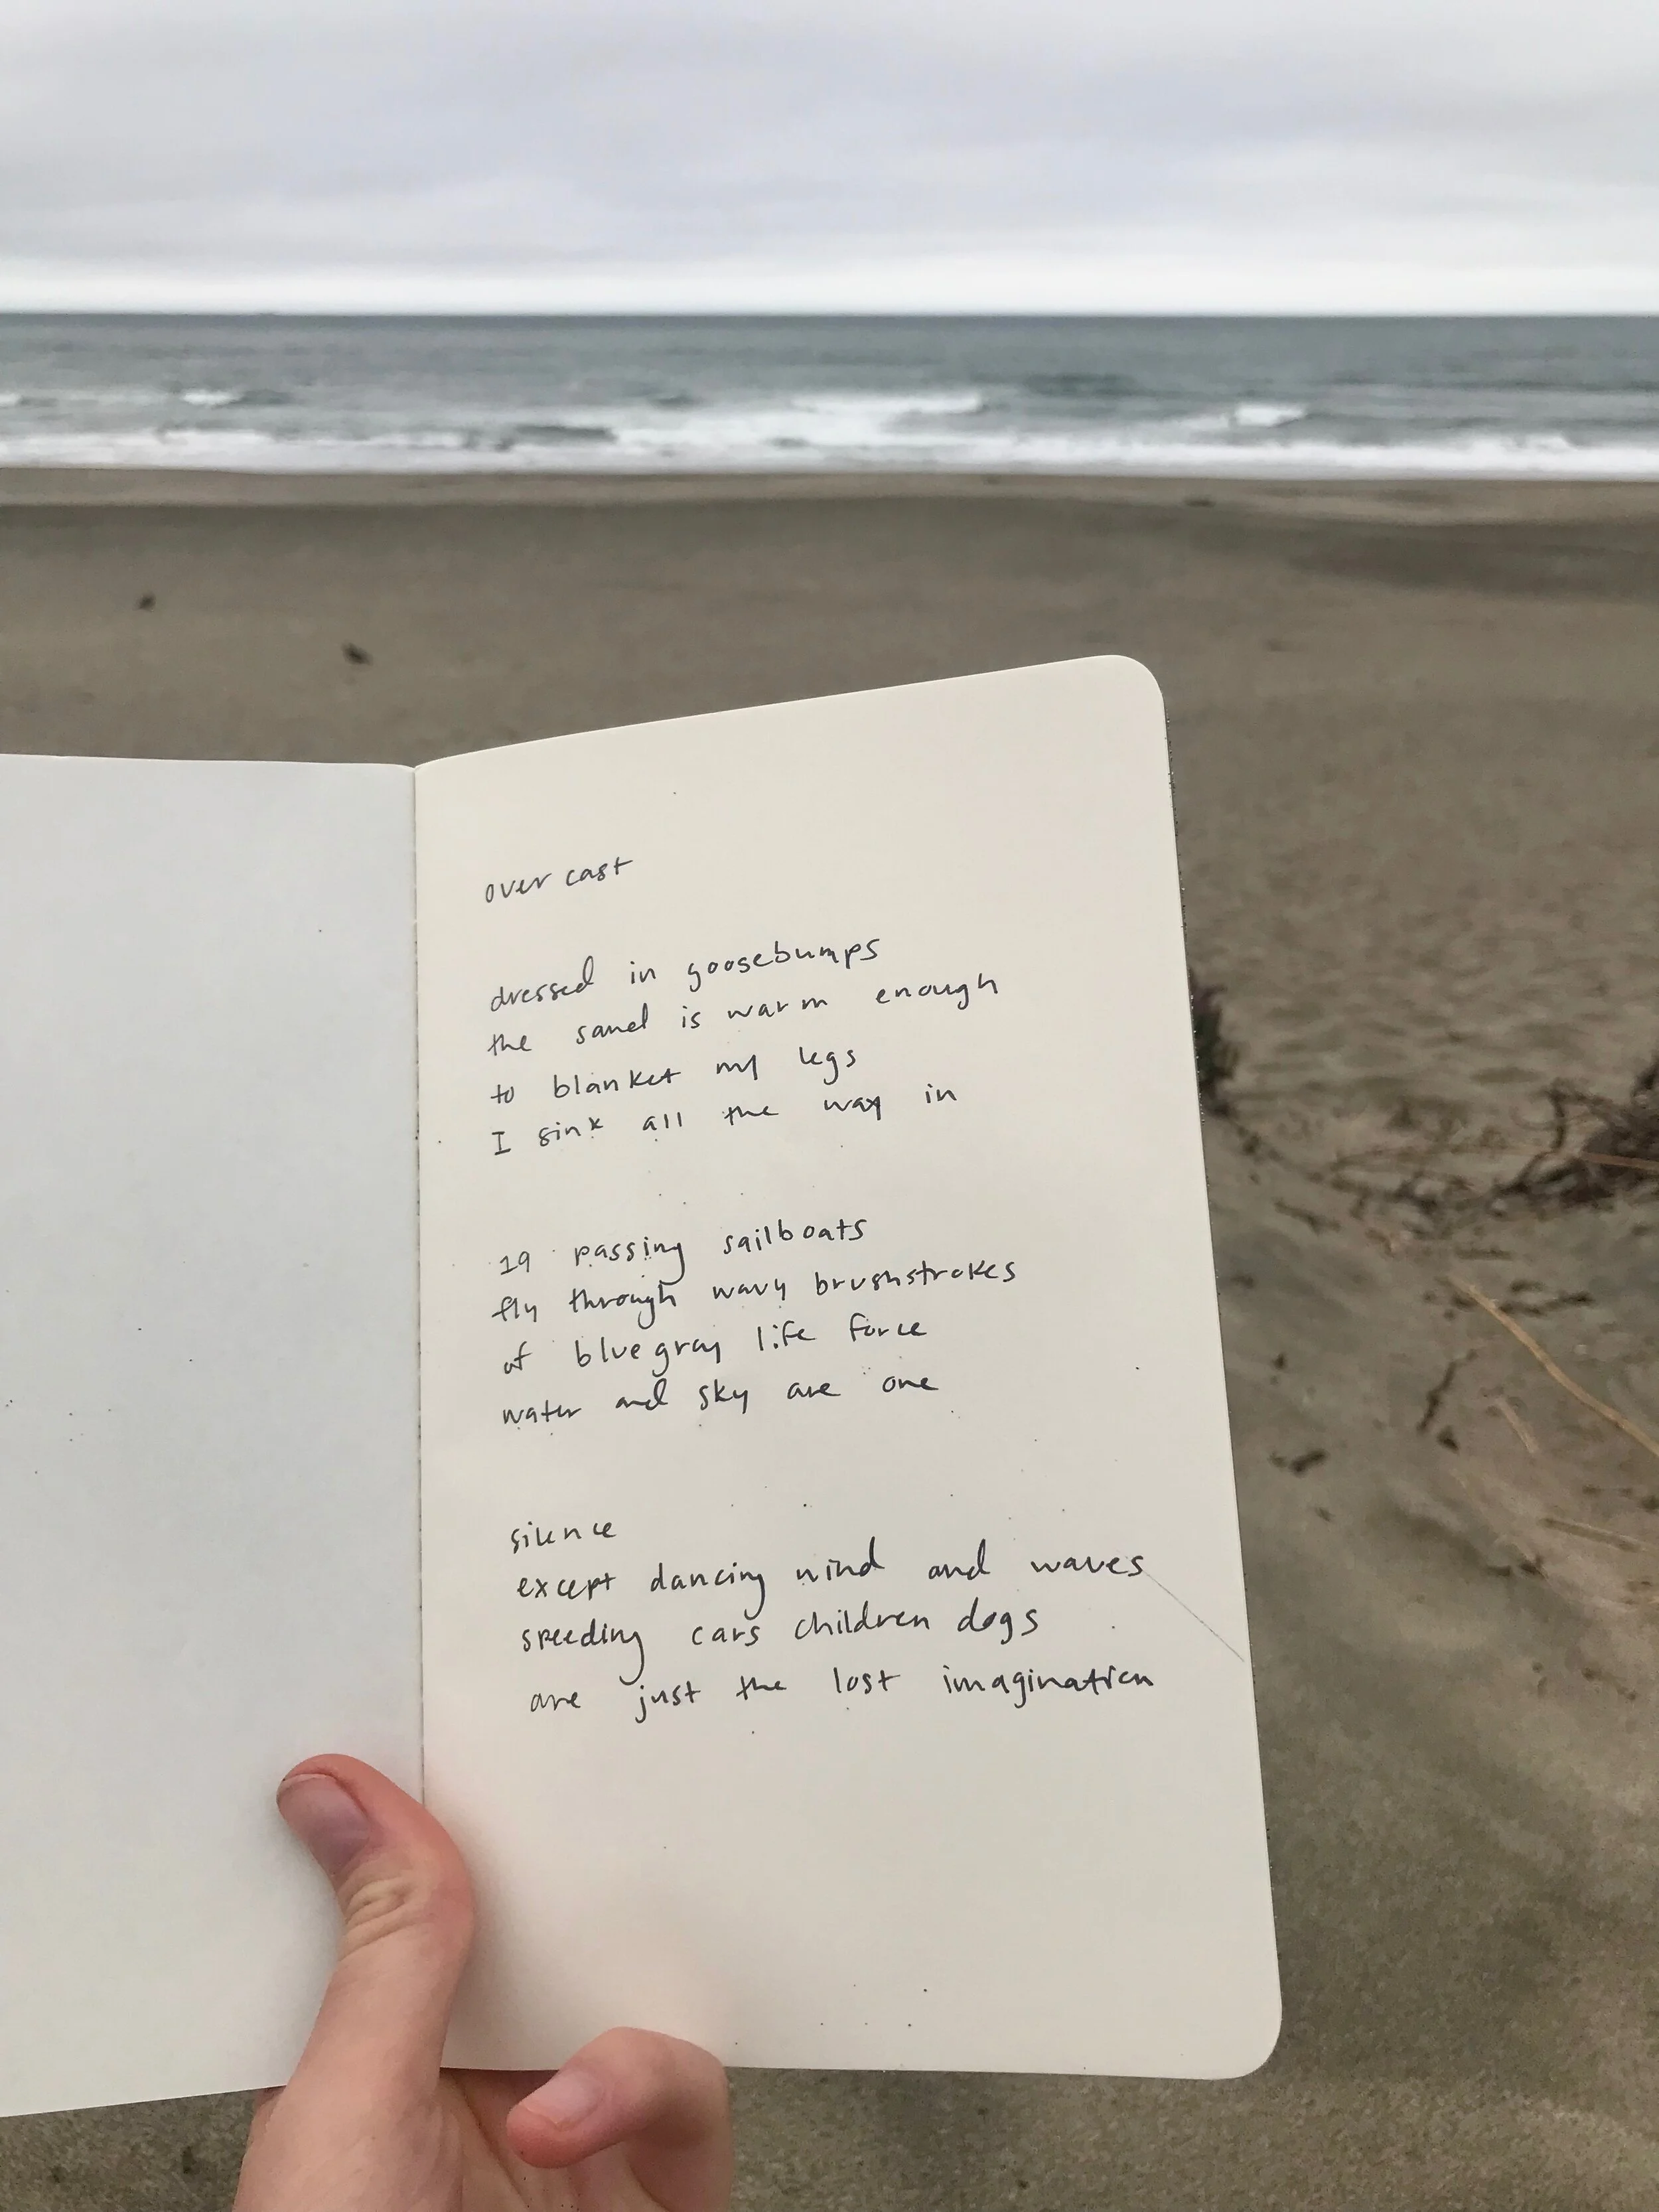 over cast
dressed in goosebumps
the sand is warm enough
to blanket my legs
I sink all the way in
19 passing sailboats
fly through wavy brushstrokes
of blue gray life force
water and sky are one
silence
except dancing wind and waves
speeding cars children dogs
are just the lost imagination